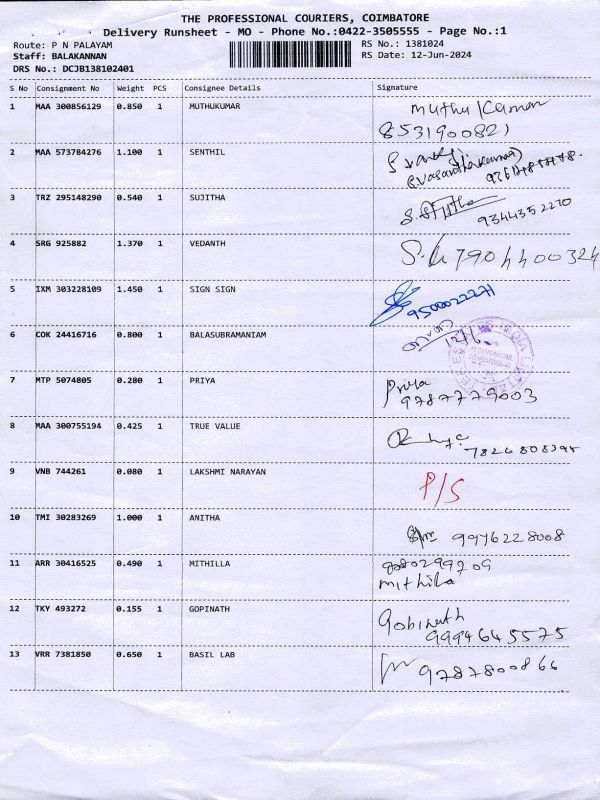 THE PROFESSIONAL COURIERS, COIMBATORE
Delivery Runsheet - MO - Phone No.:0422-3505555 - Page No.:1
Route: P N PALAYAM
RS No.: 1381024
Staff: BALAKANNAN
RS Date: 12-Jun-2024
DRS No.: DCJB138102401
S No Consignment No Weight PCS Consignee Details Signature
1 MAA 300856129 0.850 1 MUTHUKUMAR Muthu Kumar
8531900821
2 MAA 573784276 1.100 1 SENTHIL
(Vasanthakumar)
3 TRZ 295148290 0.540 1 SUJITHA
9344352270
4 SRG 925882 1.370 1 VEDANTH 7904400324
5 IXM 303228109 1.450 1 SIGN SIGN 9500022271
6 COK 24416716 0.800 1 BALASUBRAMANIAM 12/6
7 MTP 5074805 0.280 1 PRIYA Priya
9787779003
8 MAA 300755194 0.425 1 TRUE VALUE
9 VNB 744261 0.080 1 LAKSHMI NARAYAN P/S
10 TMI 30283269 1.000 1 ANITHA 9976228008
11 ARR 30416525 0.490 1 MITHILLA
Mithila
12 TKY 493272 0.155 1 GOPINATH Gobinath
9994645575
13 VRR 7381850 0.650 1 BASIL LAB 9787800866